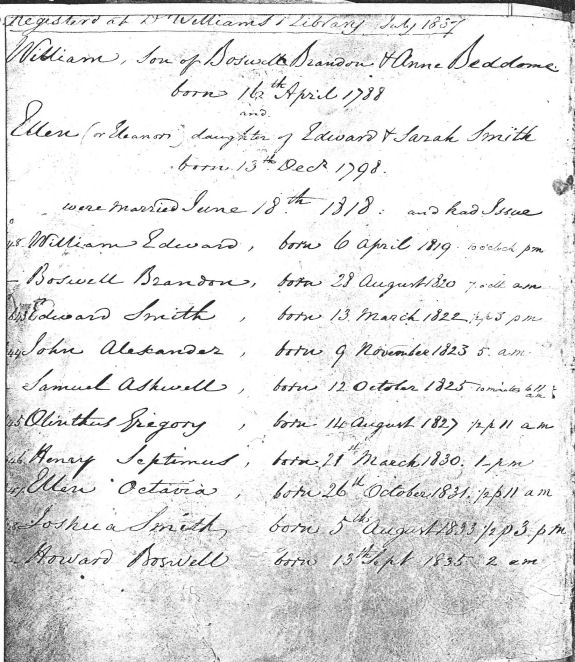 Registered at Dr Williams's Library July 1837
William, Son of Boswell Brandon & Anne Beddome
born 16th April 1788
and
Ellen (or Eleanor) daughter of Edward & Sarah Smith
born 13th Decr 1798.
were married June 18th 1818: and had Issue
William Edward, born 6 April 1819. 10 o'clock pm
Boswell Brandon, born 28 August 1820 7 o'clk am
Edward Smith, born 13 March 1822 1/2 p 3 pm
John Alexander, born 9 November 1823 5. am
Samuel Ashwell, born 12 October 1825 10 minutes to 11 am
Olinthus Gregory, born 14 August 1827 1/2 p 11 am
Henry Septimus, born 21st March 1830. 1 pm
Ellen Octavia, born 26th October 1831. 1/2 p 11 am
Joshua Smith, born 5th August 1833 1/2 p 3. pm
Howard Boswell born 13th Sept 1835 2 am